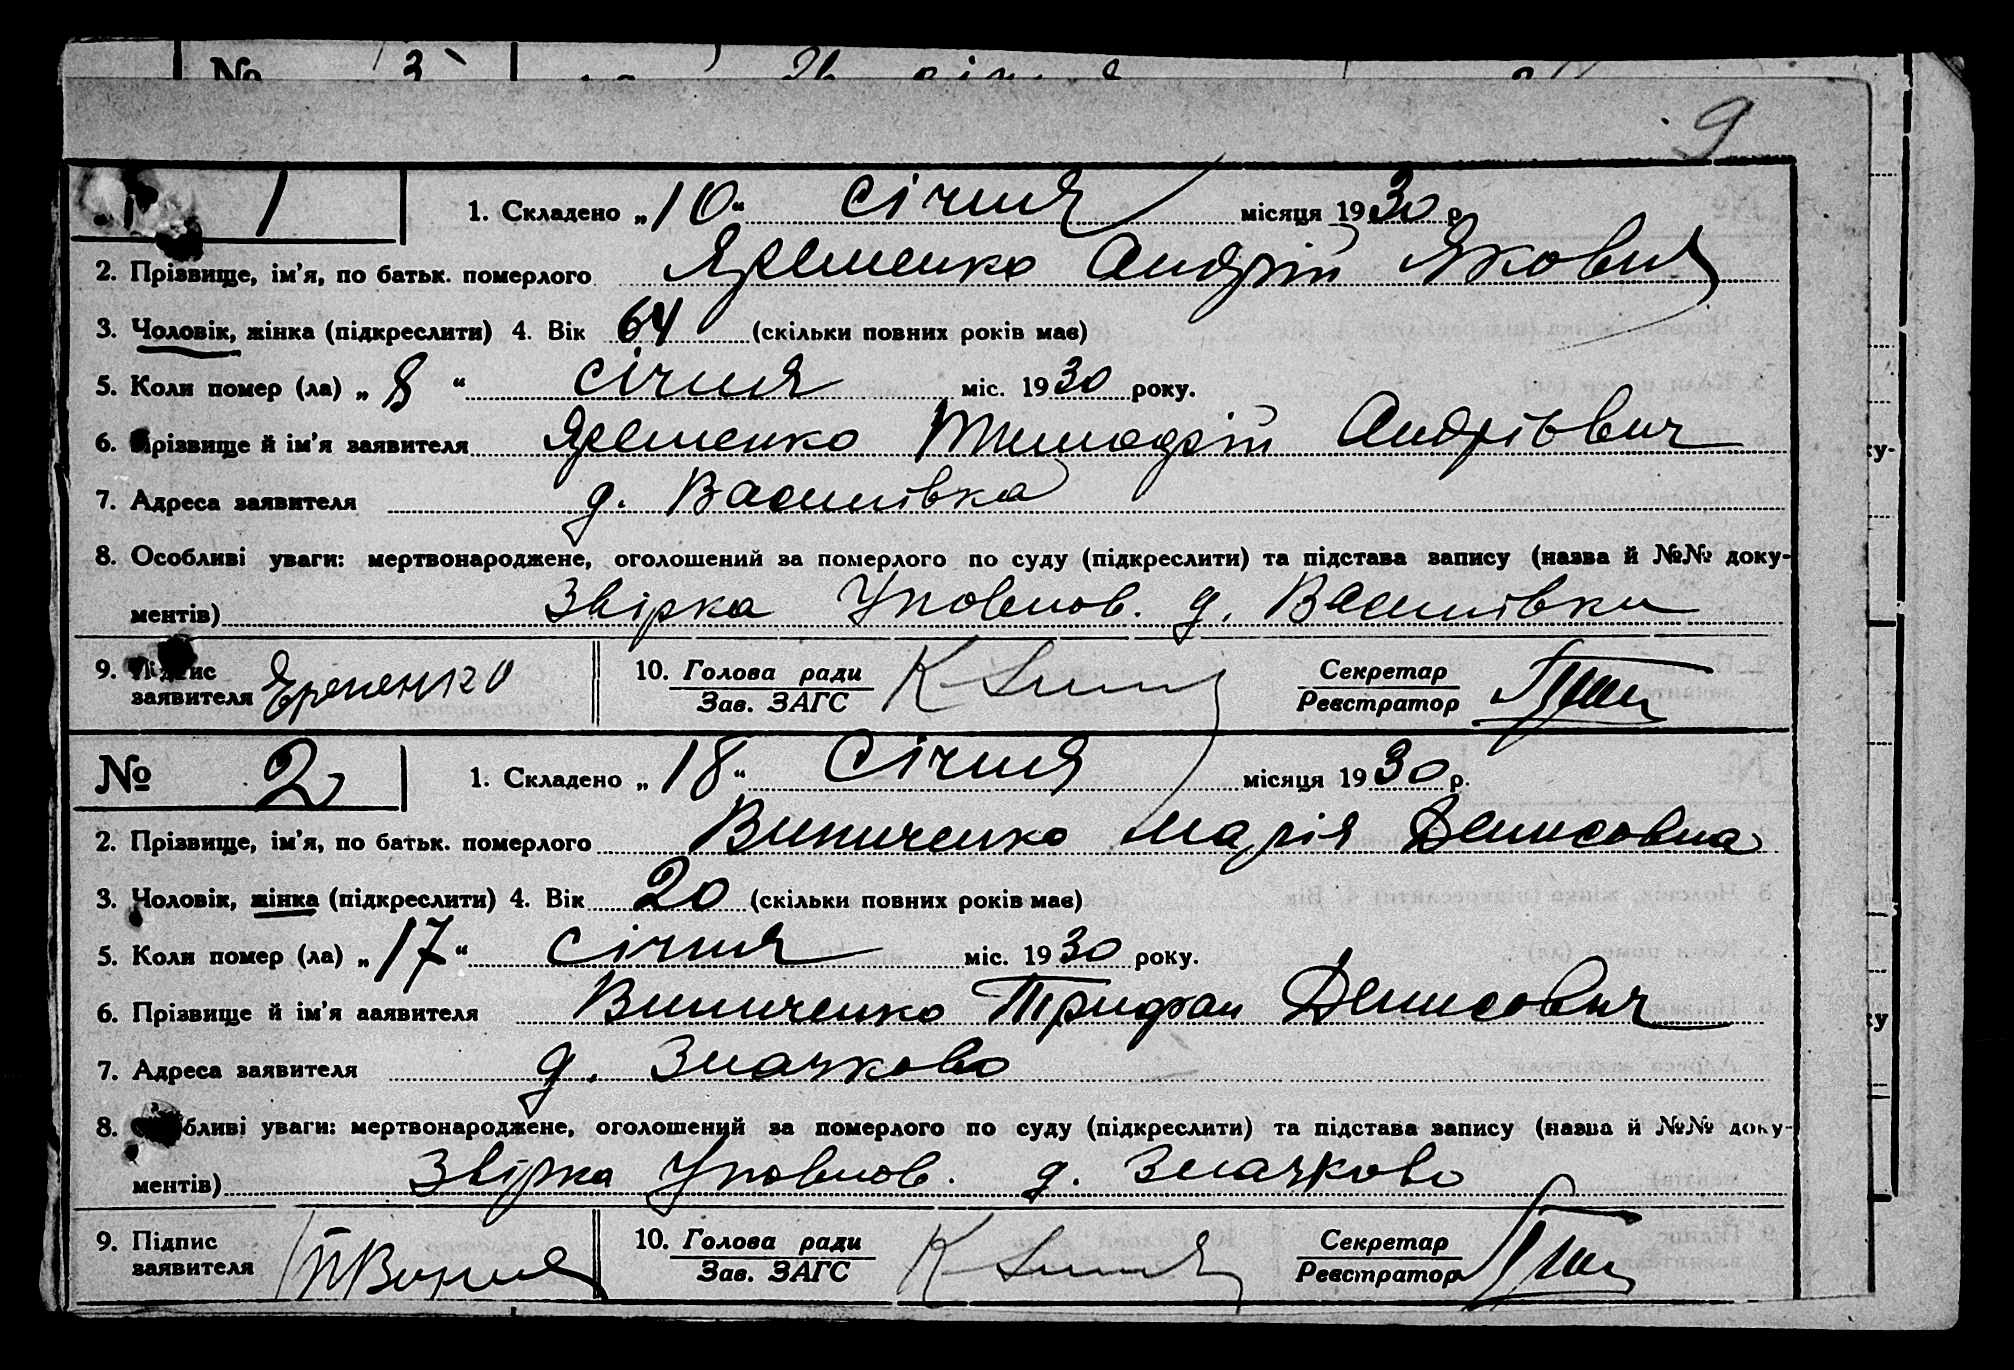 9
1 1. Складено „10“ січня місяця 1930 р.
2. Прізвище, ім’я, по батьк. померлого Яременко Андрій Якович
3. Чоловік, жінка (підкреслити) 4. Вік 64 (скільки повних років має)
5. Коли помер (ла) „8“ січня міс. 1930 року.
6. Прізвище й ім’я заявителя Яременко Андрієвич
7. Адреса заявителя д. Василівка
8. Особливі уваги: мертвонароджене, оголошений за померлого по суду (підкреслити) та підстава запису (назва й №№ доку-
ментів) Звірка Уповнов. д. Василівки
9. Підпис заявителя 10. Голова ради Зав. ЗАГС Секретар Реєстратор
№ 2 1. Складено „18“ січня місяця 1930 р.
2. Прізвище, ім’я, по батьк. померлого Винниченко Марія Денисовна
3. Чоловік, жінка (підкреслити) 4. Вік 20 (скільки повних років має)
5. Коли помер (ла) „17“ січня міс. 1930 року.
6. Прізвище й ім’я заявителя Винниченко Трифон Денисович
7. Адреса заявителя д. Значково
8. Особливі уваги: мертвонароджене, оголошений за померлого по суду (підкреслити) та підстава запису (назва й №№ доку-
ментів) Звірка Уповнов. д. Значково
9. Підпис заявителя 10. Голова ради Зав. ЗАГС Секретар Реєстратор